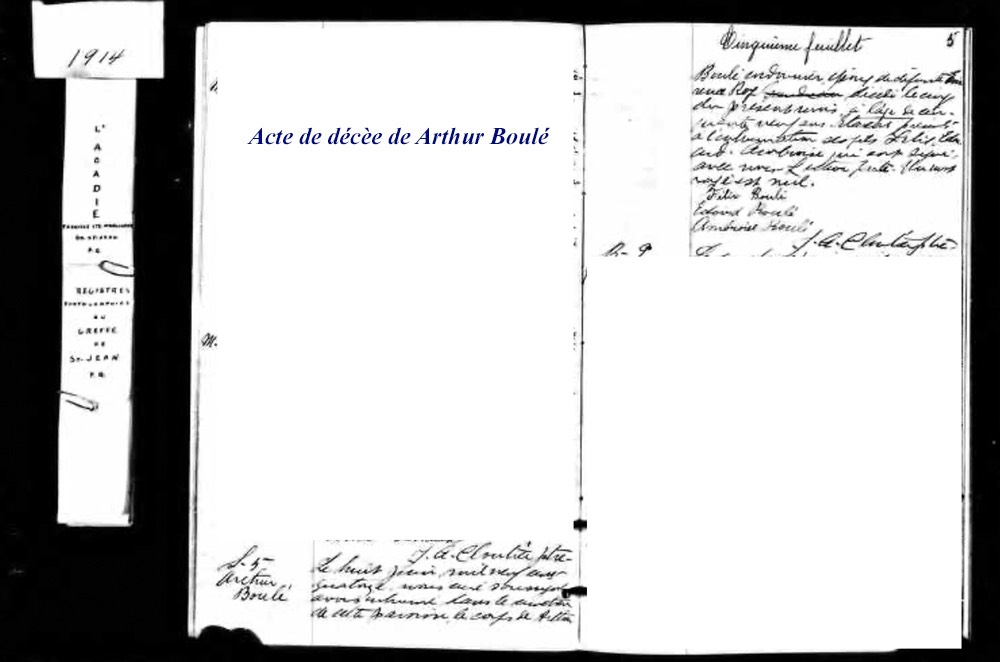 1914
L'
ACADIE
P.Q.
REGISTRES
PHOTOGRAPHIES
AU
GREFFE
DE
ST-JEAN
P.Q.
Acte de décèe de Arthur Boulé
M.
J. A. Cloutier ptre-
S-5
Arthur
Boulé
Le huit juin, mil neuf cent
quatorze, nous curé soussigné
avons inhumé dans le cimetière
de cette paroisse, le corps de Arthur
Cinquième feuillet
5
Boulé cordonnier époux de défunte
Roy décédé le cinq
du présent mois, à l'âge de cin-
quante neuf ans. Etaient présents
à l'inhumation ses fils Félix, Edou
ard, Ambroise qui ont signé
avec nous. Lecture faite. Un mot
rayé est nul.
Félix Boulé
Edouard Boulé
Ambroise Boulé
J. A. Cloutier ptre-
B-9